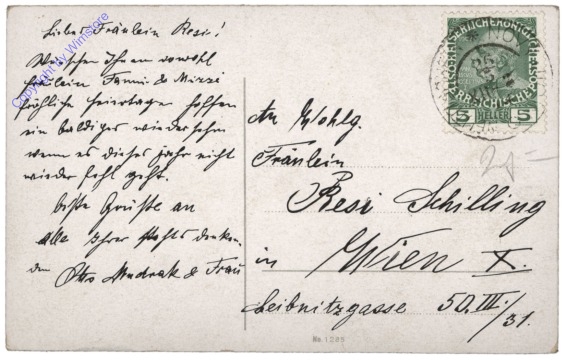 Liebes Fräulein Resi!
Wünschen Ihnen sowohl
Fräulein Fanni & Mizzi
fröhliche Feiertage hoffen
ein baldiges wiedersehn
wenn es dieses Jahr nicht
wieder fehl geht.
beste Grüße an
Alle Ihrer stets denken
den Otto Mudrak & Frau
Copyright by Winistore
5 HELLER 5
An Wohlg.
Fräulein
Resi Schilling
in Wien X.
Leibnitzgasse 50. III./31.
No. 1285